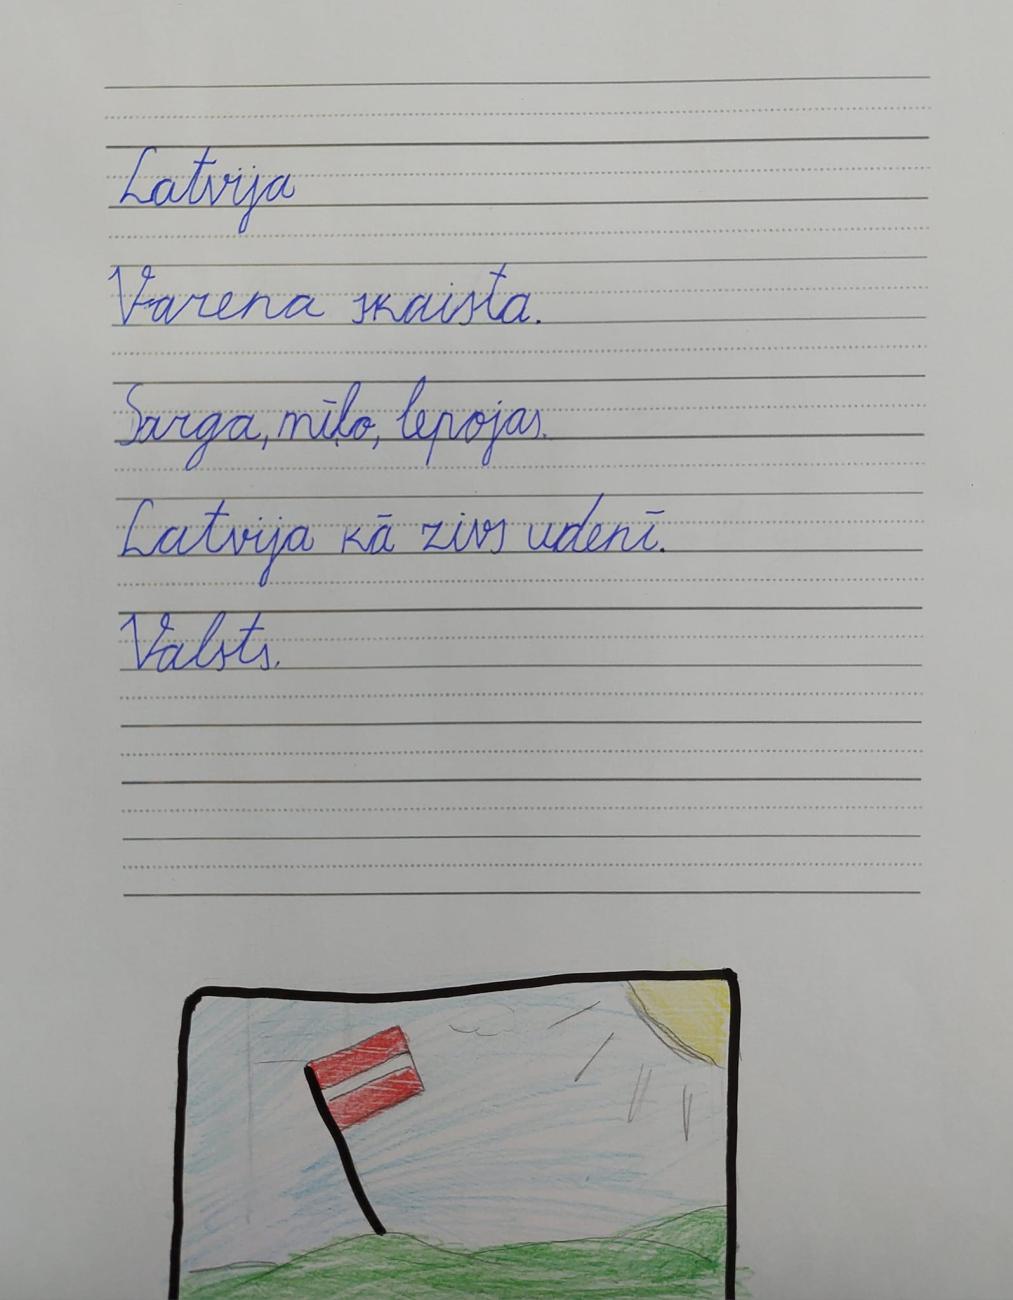 Latvija
Varena skaista.
Sarga, mīļo, lepojas.
Latvija kā zivs udenī.
Valsts.